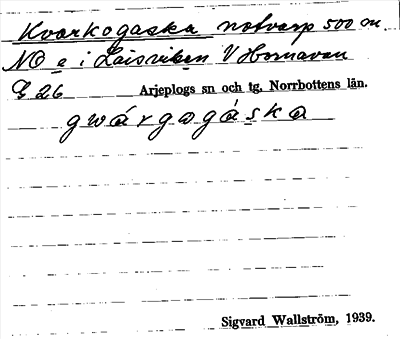 Kvarkogaska notvarp 500 m
NO e i Laisviken V Hornavan
G 26 Arjeplogs sn och tg, Norrbottens län.
gwárgogáska
Sigvard Wallström, 1939.